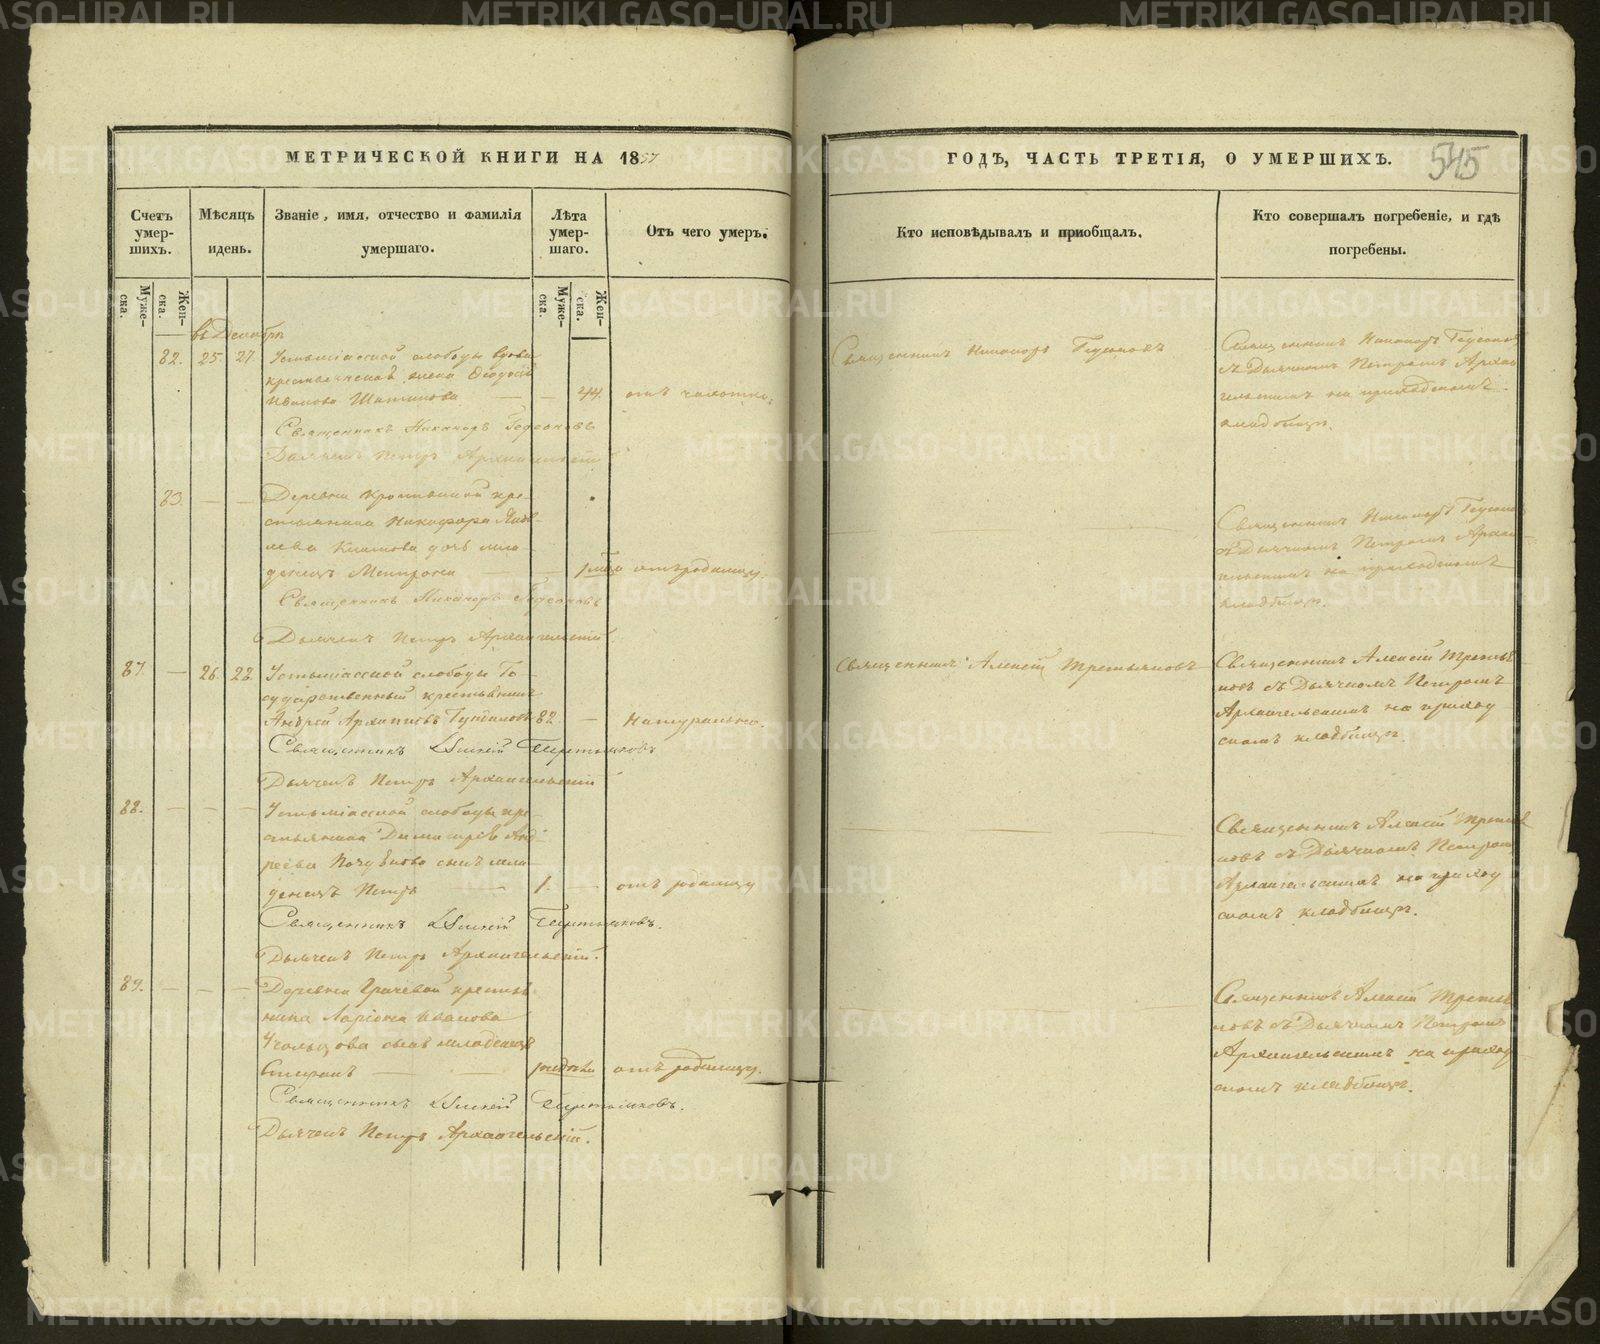 МЕТРИЧЕСКОЙ КНИГИ НА 1857
ГОДЪ, ЧАСТЬ ТРЕТІЯ, О УМЕРШИХЪ.
545
Счетъ умер-шихъ.
Мѣсяцъ и день.
Званіе, имя, отчество и фамилія умершаго.
Лѣта умер-шаго.
Отъ чего умеръ.
Кто исповѣдывалъ и пріобщалъ.
Кто совершалъ погребеніе, и гдѣ погребены.
Муже-ска.
Жен-ска.
Муже-ска.
Жен-ска.
въ Декабрѣ
82. 25. 27. Устьміасской слободы вдова
крестьянская жена Ѳеодосія
Иванова 44. отъ чахотки.
Священникъ Никаноръ Гедеоновъ
Дьячекъ Петръ Архангельскій
Священникъ Никаноръ Гедеоновъ
Священникъ Никаноръ Гедеоновъ
съ Дьячкомъ Петромъ Архан-
гельскимъ на приходскомъ
кладбищѣ.
83. Деревни кре-
стьянина Никифора Яков-
лева дочь мла-
денецъ Матрона 1 отъ родимцу.
Священникъ Никаноръ Гедеоновъ
Дьячекъ Петръ Архангельскій
Священникъ Никаноръ Гедеоновъ
съ Дьячкомъ Петромъ Архан-
гельскимъ на приходскомъ
кладбищѣ.
87. 26. 28. Устьміасской слободы Го-
сударственный крестьянинъ
Андрей Архиповъ 82. Натурально.
Священникъ Алексій Третьяковъ
Дьячекъ Петръ Архангельскій
Священникъ Алексій Третьяковъ
Священникъ Алексій Третья-
ковъ съ Дьячкомъ Петромъ
Архангельскимъ на приход-
скомъ кладбищѣ.
88. Устьміасской слободы кре-
стьянина Димитрія Анд-
реева сынъ мла-
денецъ Петръ 1. отъ родимцу
Священникъ Алексій Третьяковъ.
Дьячекъ Петръ Архангельскій.
Священникъ Алексій Третья-
ковъ съ Дьячкомъ Петромъ
Архангельскимъ на приход-
скомъ кладбищѣ.
89. Деревни Грачевой крестья-
нина Ларіона Иванова
сынъ младенецъ
отъ родимцу.
Священникъ Алексій Третьяковъ.
Дьячекъ Петръ Архангельскій.
Священникъ Алексій Третья-
ковъ съ Дьячкомъ Петромъ
Архангельскимъ на приход-
скомъ кладбищѣ.
METRIKI.GASO-URAL.RU